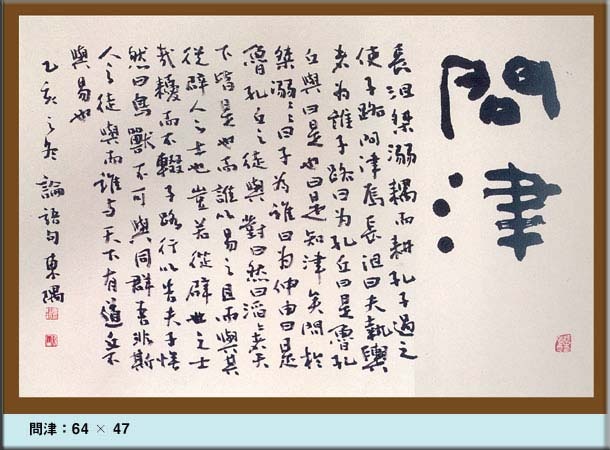 問津
長沮桀溺耦而耕孔子過之
使子路問津焉長沮曰夫執輿
者為誰子路曰為孔丘曰是魯孔
丘與曰是也曰是知津矣問於
桀溺〻曰子為誰曰為仲由曰是
魯孔丘之徒與對曰然曰滔〻者天
下皆是也而誰以易之且而與其
從辟人之士也豈若從辟世之士
哉耰而不輟子路行以告夫子憮
然曰鳥獸不可與同群吾非斯
人之徒與而誰与天下有道丘不
與易也
乙亥之冬 論語句 東隅
問津：64 × 47